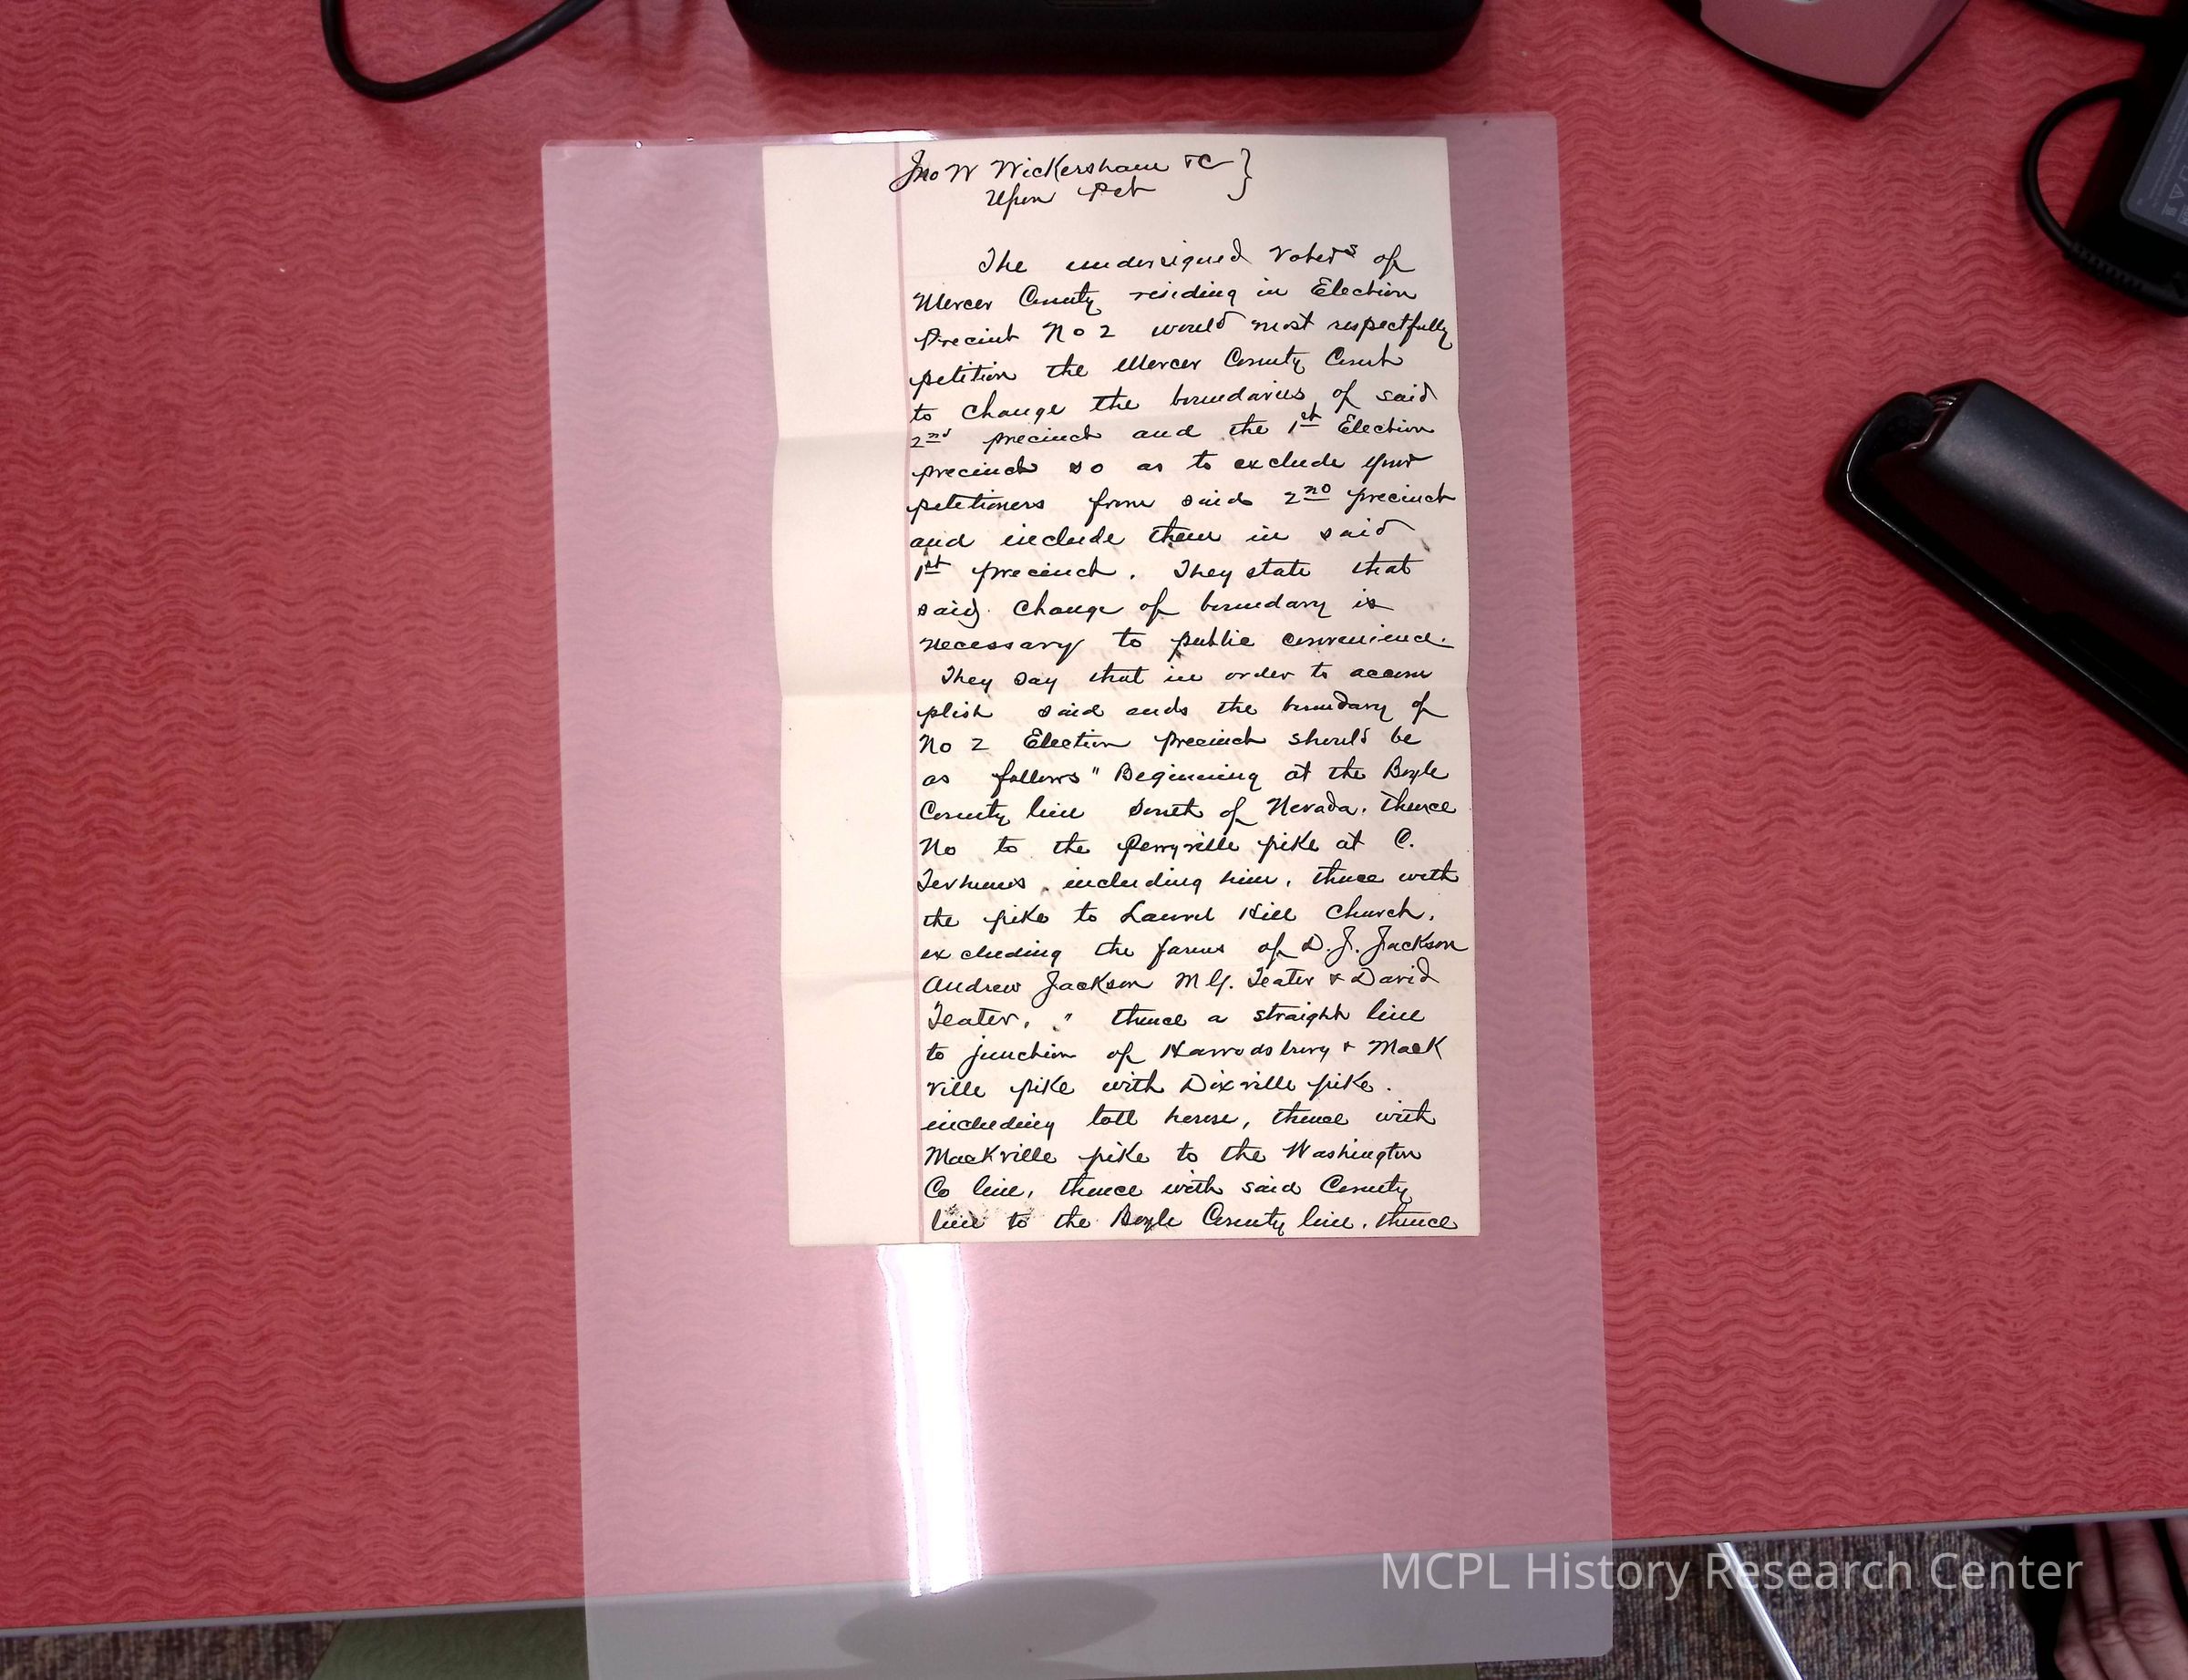 Jno W Wickersham &C }
Upon Pet
The undersigned Voters of
Mercer County residing in Election
Precinct No 2 would most respectfully
petition the Mercer County Court
to change the boundaries of said
2nd precinct and the 1st Election
precinct so as to exclude your
petetioners from said 2nd precinct
and include them in said
1st precinct. They state that
said change of boundary is
necessary to public convenience.
They say that in order to accom
plish said ends the boundary of
No 2 Election precinct should be
as follows " Beginning at the Boyle
County line South of Nevada, thence
No to the Perryville pike at C.
Terhunes, including him, thence with
the pike to Laurel Hill Church,
excluding the farms of D. J. Jackson
Andrew Jackson M G. Teater & David
Teater, " thence a straight line
to junction of Harrodsburg & Mack
ville pike with Dixville pike.
including toll house, thence with
Mackville pike to the Washington
Co line, thence with said County
line to the Boyle County line, thence
MCPL History Research Center